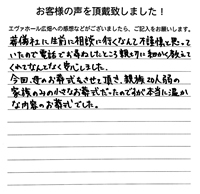 お客様の声を頂戴致しました！
エヴァホール広畑への感想などがございましたら、ご記入をお願いします。
葬儀社に生前に相談に行くなんて不謹慎と思って
いたので電話でお尋ねしたところ親切に細かく教えて
くれてなんてなく安心しました。
今回、母のお葬式をさせて頂き、親族20人弱の
家族のみの小さなお葬式だったのですが本当に温か
な内容のお葬式でした。